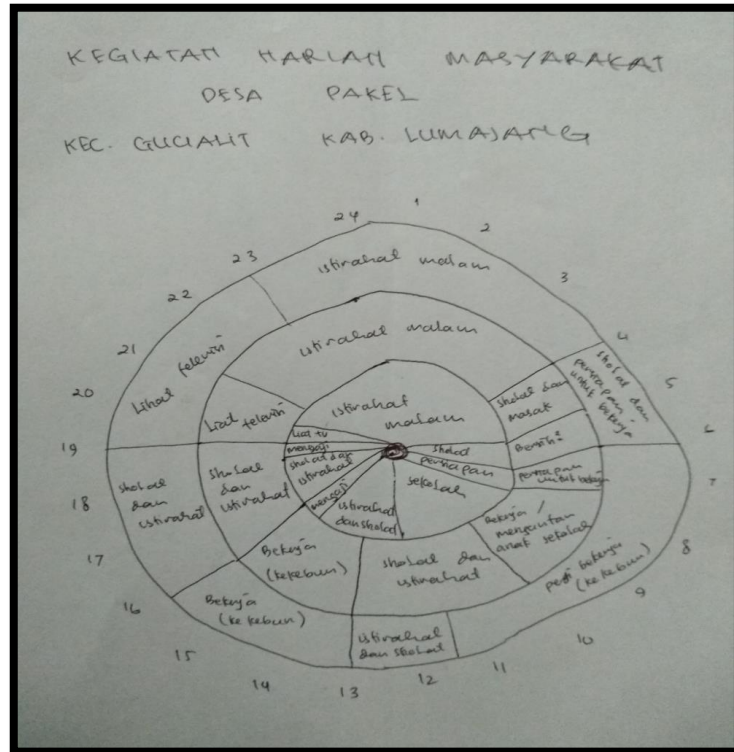 KEGIATAN HARIAN MASYARAKAT
DESA PAKEL
KEC. GUCIALIT KAB. LUMAJANG
24
1
2
3
4
5
6
7
8
9
10
11
12
13
14
15
16
17
18
19
20
21
22
23
istirahat malam
sholat dan
persiapan
untuk bekerja
pergi bekerja
(ke kebun)
istirahat
dan sholat
Bekerja
(ke kebun)
sholat
dan
istirahat
Lihat televisi
istirahat malam
sholat dan
masak
Bersih2
persiapan
untuk bekerja
Bekerja /
mengantar
anak sekolah
sholat dan
istirahat
Bekerja
(ke kebun)
sholat
dan
istirahat
Liat televisi
istirahat
malam
sholat
persiapan
sekolah
istirahat
dan sholat
mengaji
sholat dan
istirahat
mengaji
Liat tv